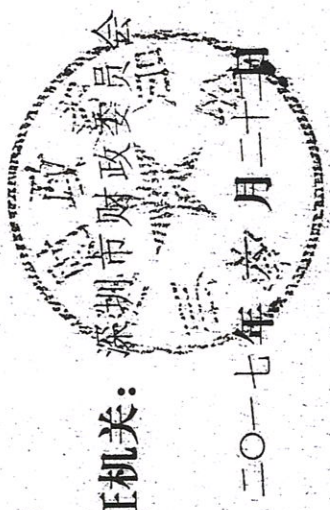 证机关：深圳市财政委员会
二〇一七年 六 月二十二日